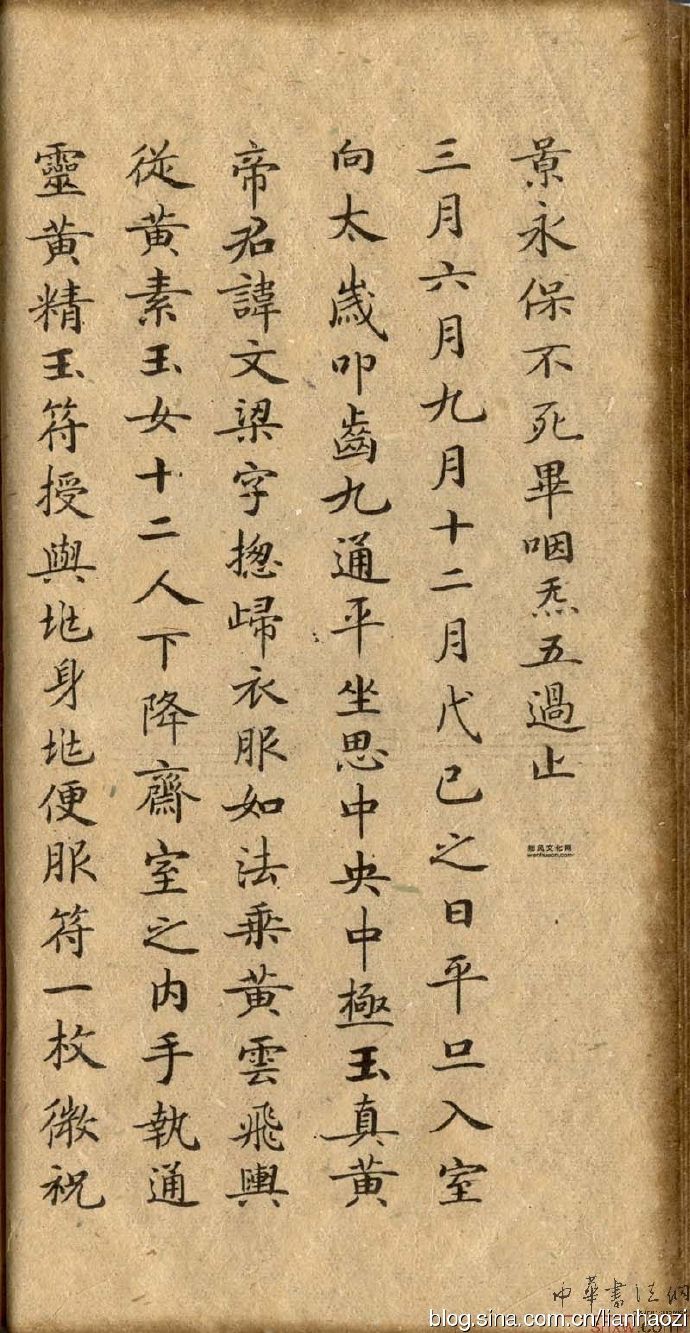 景永保不死畢咽炁五過止
三月六月九月十二月戊己之日平旦入室
向太歲叩齒九通平坐思中央中極玉真黃
帝君諱文梁字揔歸衣服如法乘黃雲飛輿
從黃素玉女十二人下降齋室之内手執通
靈黃精玉符授與地身地便服符一枚微祝
中華書法網
blog.sina.com.cn/lianhaozi